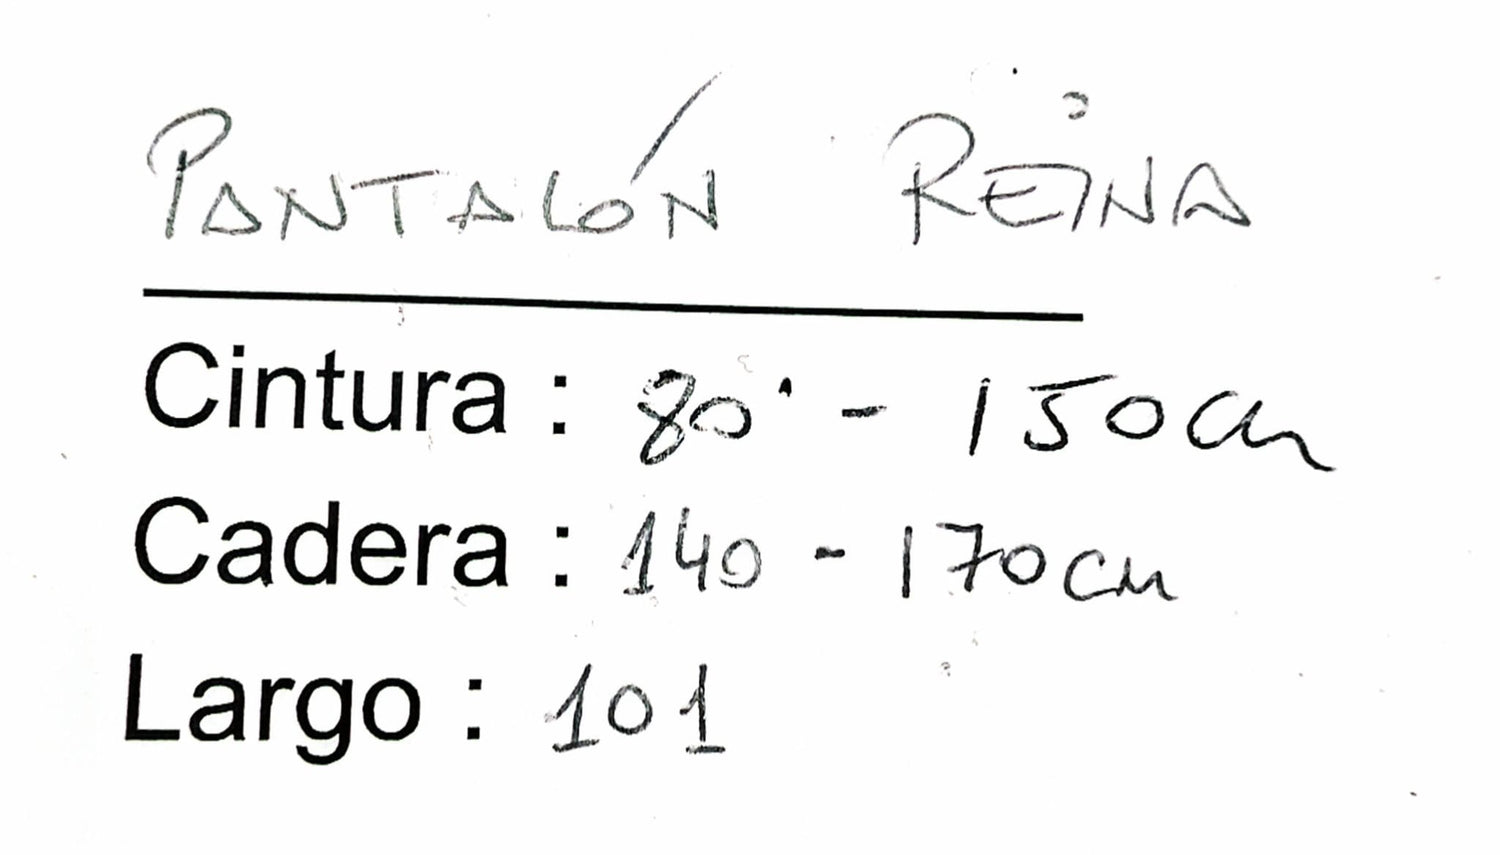 PANTALÓN REINA
Cintura : 80 - 150cm
Cadera : 140 - 170cm
Largo : 101